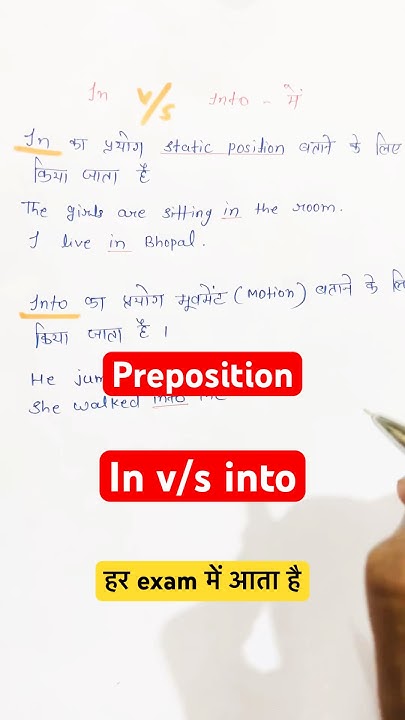 In v/s Into - में
In का प्रयोग static position बताने के लिए
किया जाता है
The girls are sitting in the room.
I live in Bhopal.
Into का प्रयोग मूवमेंट (Motion) बताने के
किया जाता है ।
He
Preposition
She walked into
In v/s into
हर exam में आता है